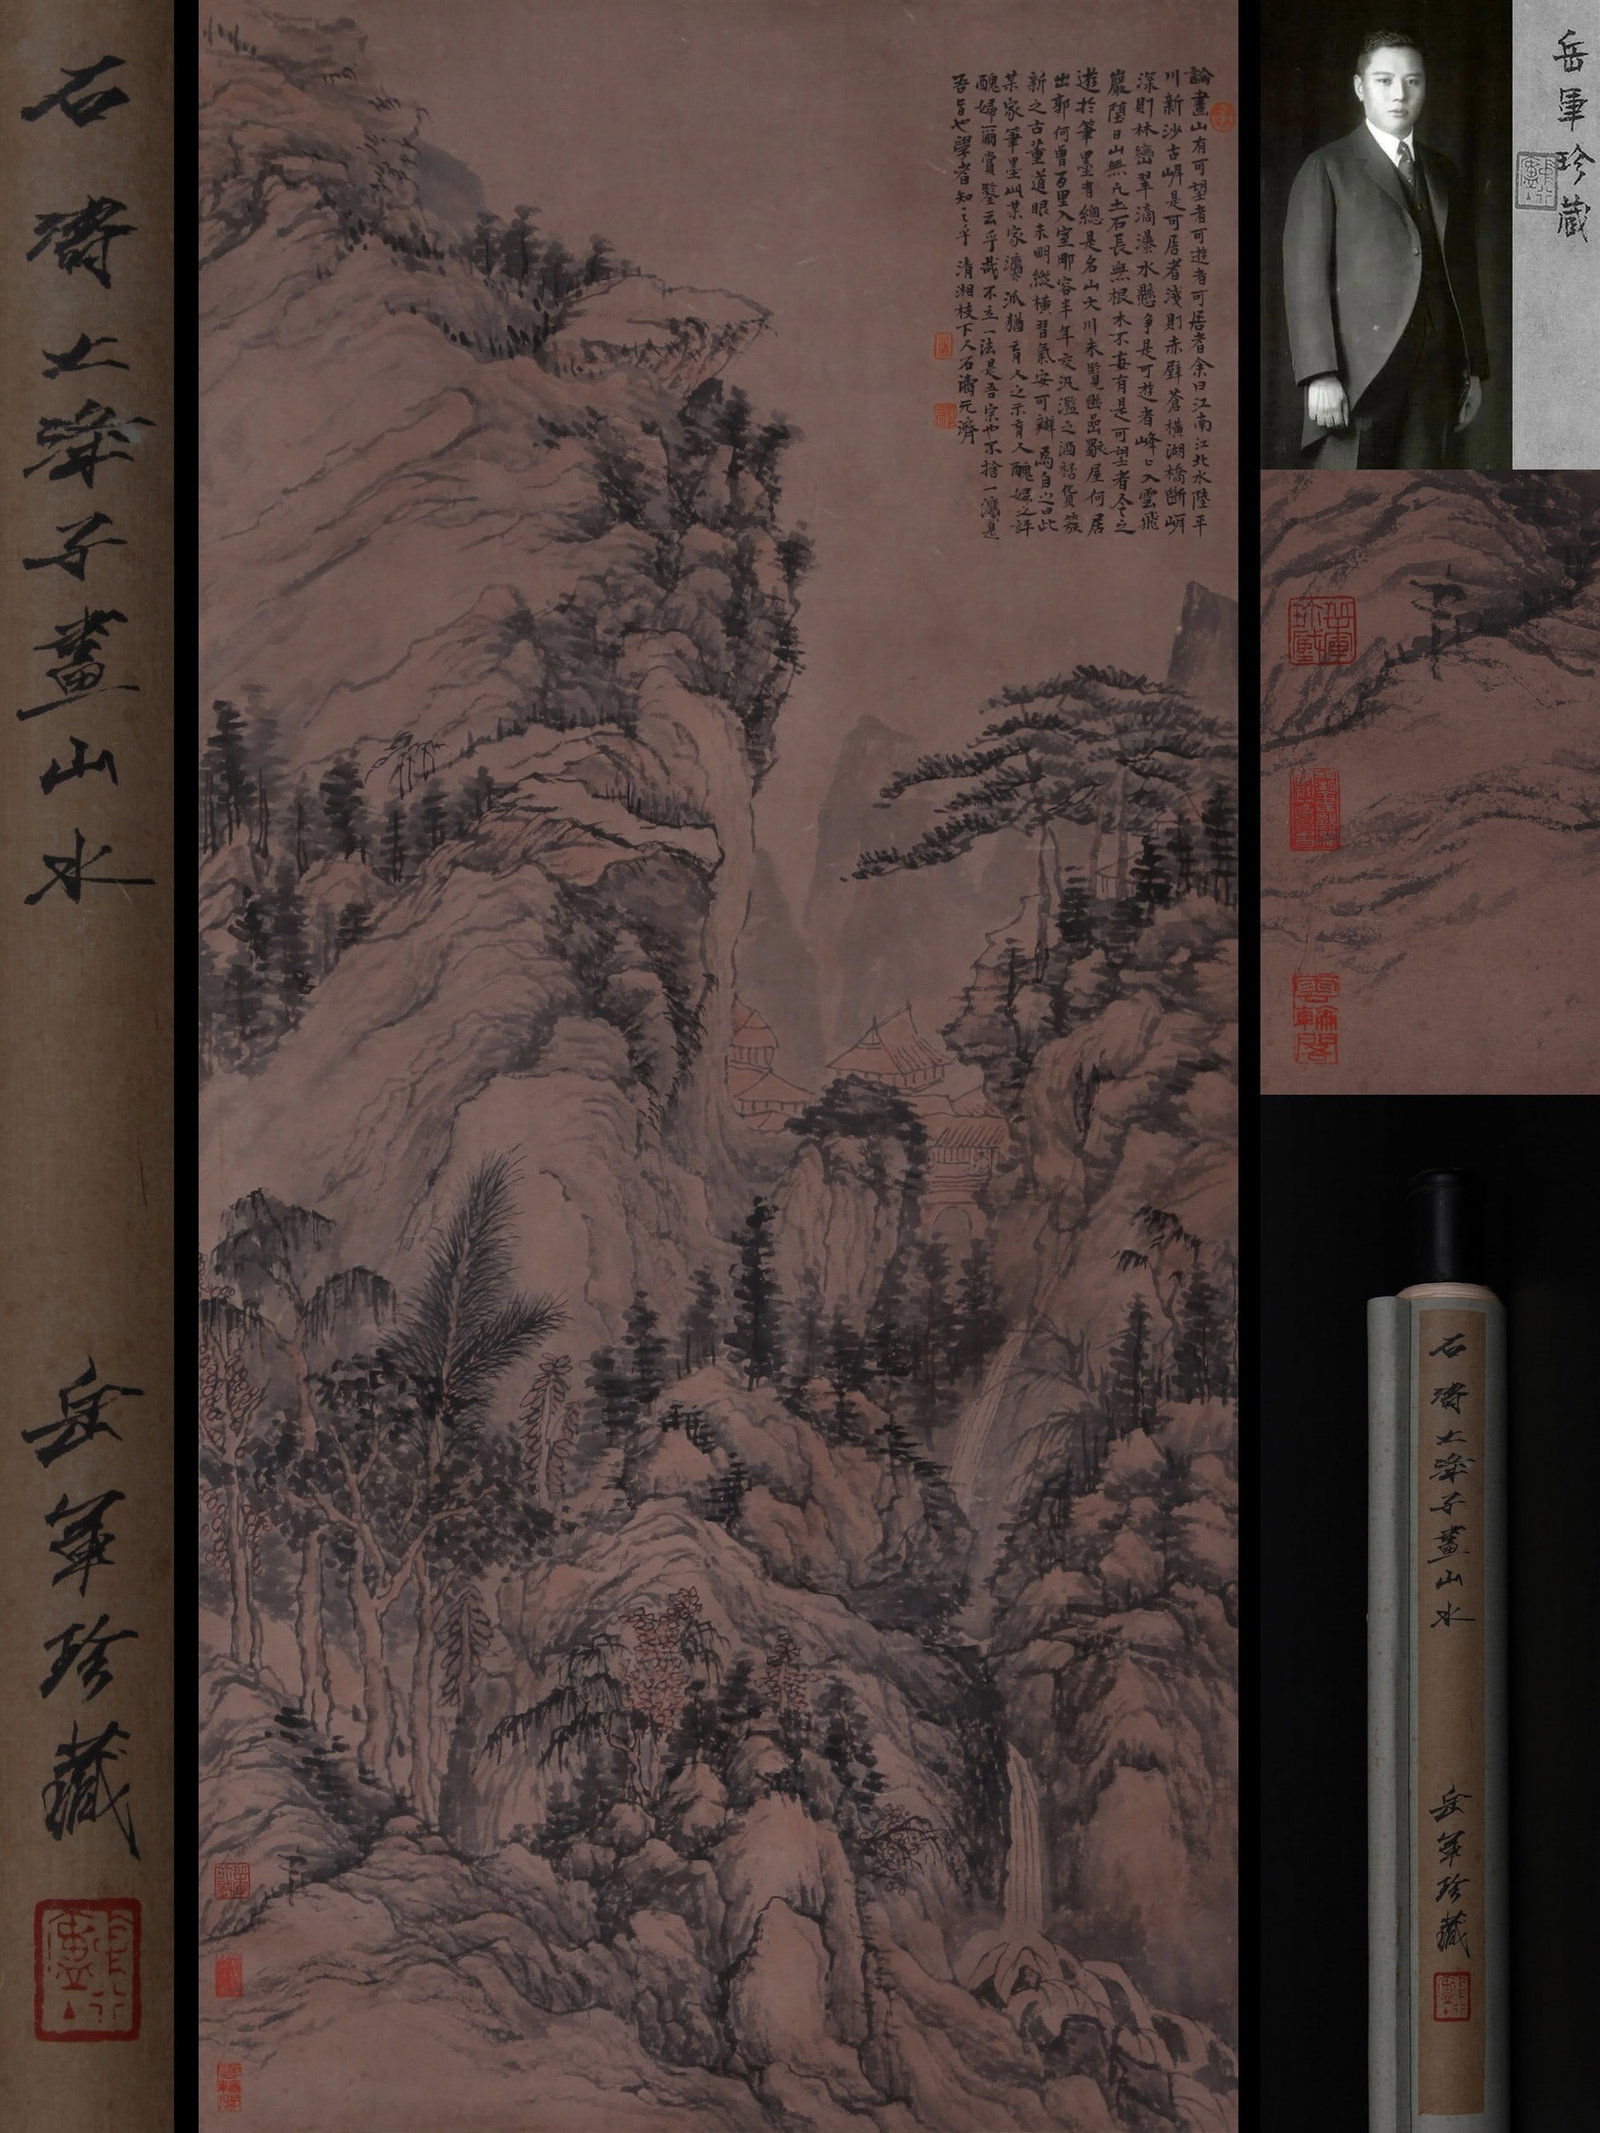 石濤大滌子畫山水 岳軍珍藏
論畫山有可望者可遊者可居者余曰江南江北水陸平
川新沙古岍是可居者淺則赤壁蒼橫湖橋斷岍
深則林巒翠滴瀑水懸爭是可遊者峰々入雲飛
巖墮日山無凡土石長無根木不妄有是可望者今之
遊於筆墨者總是名山大川未覽幽嵒獨屋何居
出郭何曾百里入室那容半年交汎濫之酒杯貨簇
新之古董道眼未明縱橫習氣安可辯焉自之曰此
某家筆墨此某家灋派猶盲人之示盲人醜婦之評
醜婦爾賞鑒云乎哉不立一法是吾宗也不捨一灋是
吾旨也學者知之乎 清湘枝下人石濤元濟
岳軍珍藏
雲輪閣
石濤大滌子畫山水 岳軍珍藏